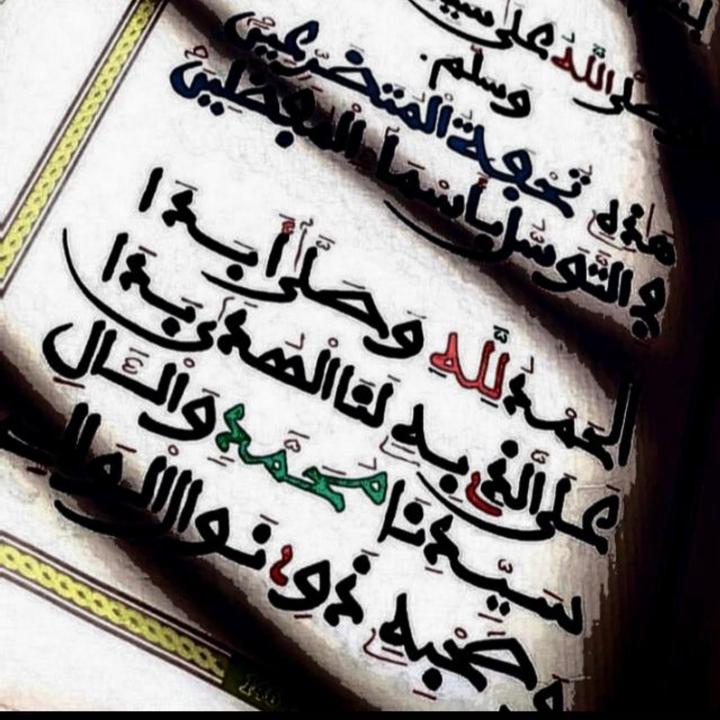 صلى الله على
وسلم .
هذه تحفة المتضرعين
في التوسل بأسما المفضلين
الحمد لله وصلى أبدا
على الذي به لنا الهدى بدا
سيدنا محمد والآل
وصحبه ذوي